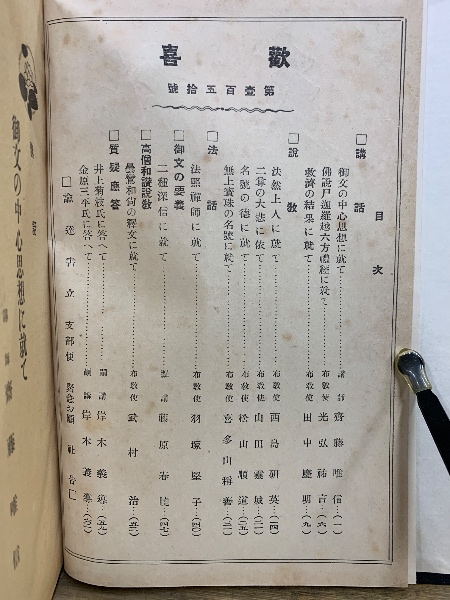 歡喜
第壹百五拾號
目次
□講話
御文の中心思想に就て……講師 齋藤唯信…(一)
佛說尸迦羅越六方禮經に就て……布敎使 光弘祐吉…(六)
救濟の結果に就て……布敎使 田中慶明…(九)
□說敎
法然上人に就て……布敎使 西島研英…(一四)
二尊の大悲に依て……布敎使 山田靈城…(二一)
名號の德に就て……布敎使 松山順道…(二五)
無上寶珠の名號に就て……布敎使 喜多山
□法話
□御文の要義
法照禪師に就て……布敎使 羽塚堅子…(四〇)
二種深信に就て……講 藤原春
□高僧和讃說敎
曇鸞和尙の釋文に就て……布敎使 武村治…(五一)
□質疑應答
井上菊枝氏に答へて……嗣講 岸木義導…(五九)
金原三平氏に答へて……嗣講 岸木義導…(六〇)
支部便 社告
御文の中心思想に就て